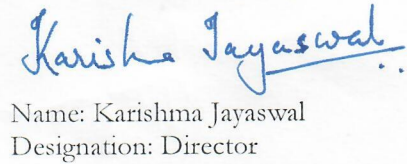 Karishma Jayaswal
Name: Karishma Jayaswal
Designation: Director